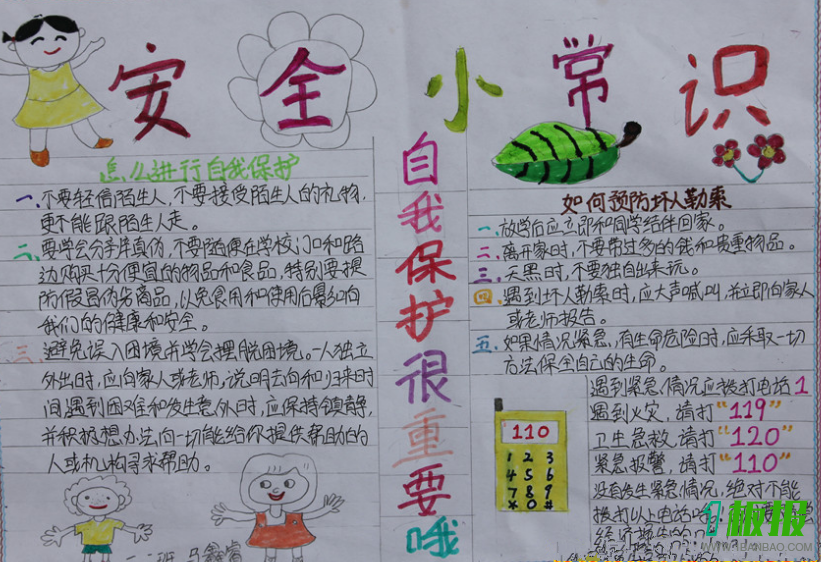 安全小常识
怎么进行自我保护
一、不要轻信陌生人,不要接受陌生人的礼物,
更不能跟陌生人走。
二、要学会分辛库真伪,不要随便在学校门口和路
边购买十分便宜的物品和食品,特别要提
防假冒伪劣商品,以免食用和使用后影响
我们的健康和安全。
三、避免误入困境并学会摆脱困境。一人独立
外出时,应向家人或老师,说明去向和归来时
间遇到困难和发生意外时,应保持镇静,
并积极想办法,向一切能给你提供帮助的
人或机构寻求帮助。
自我保护很重要哦
如何预防坏人勒索
一、放学后应立即和同学结伴回家。
二、离开家时,不要带过多的钱和贵重物品。
三、天黑时,不要独自出来玩。
四、遇到坏人勒索时,应大声喊叫,并立即向家人
或老师报告。
五、如果情况紧急,有生命危险时,应采取一切
方法保全自己的生命。
110
1 2 3
4 5 6
7 8 9
* 0 #
遇到紧急情况应拨打电话1
遇到火灾,请打“119”
卫生急救,请打“120”
紧急报警,请打“110”
没有发生紧急情况,绝对不能
拨打以上电话
班 马鑫
板报
WWW.1BANBAO.COM